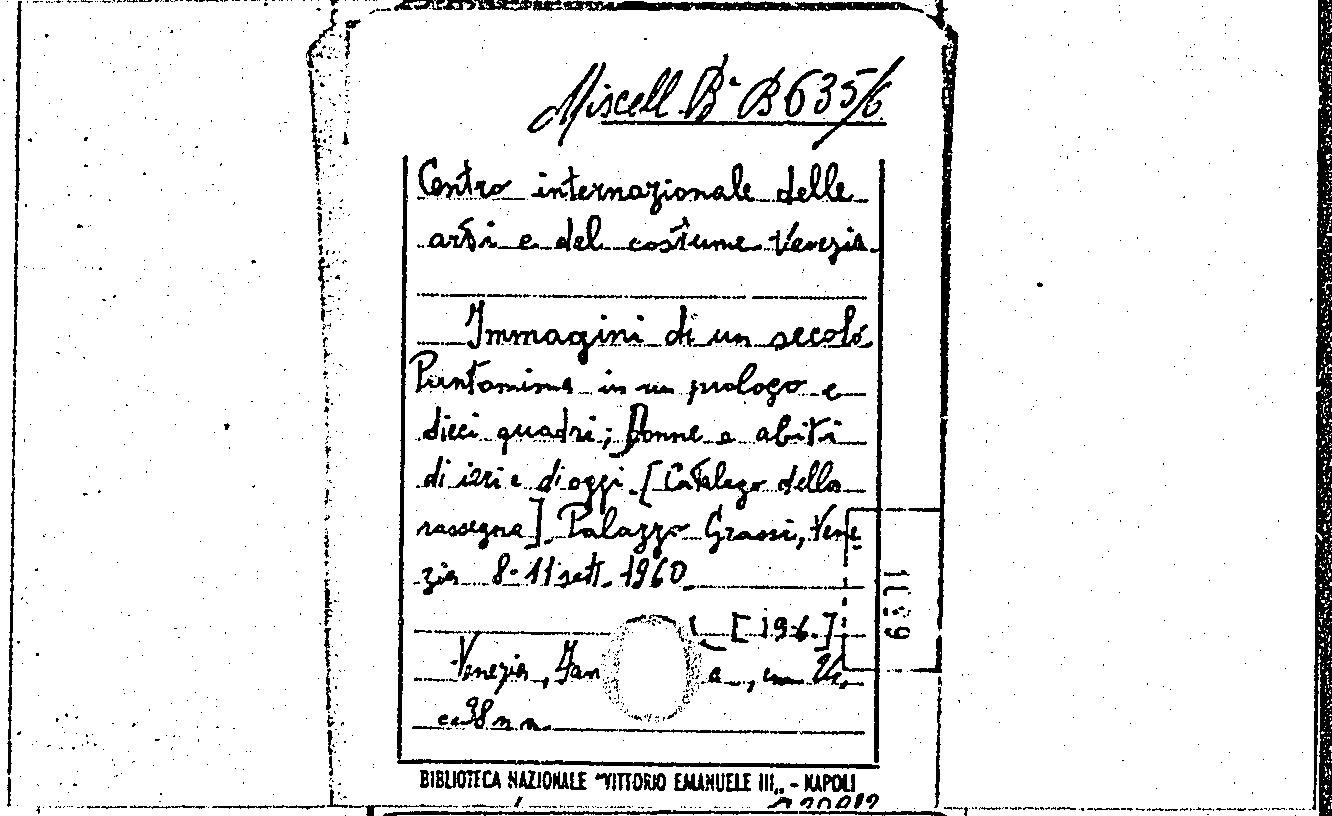 Miscell. Bª B 635/6
Centro internazionale delle
arti e del costume Venezia.
Immagini di un secolo
Pantomima in un prologo e
dieci quadri; Donne e abiti
di ieri e di oggi. [Catalogo della
rassegna]. Palazzo Grassi, Vene
zia 8-11 sett. 1960
[196.]
Venezia,
cc 98 n n.
BIBLIOTECA NAZIONALE "VITTORIO EMANUELE III„ - NAPOLI